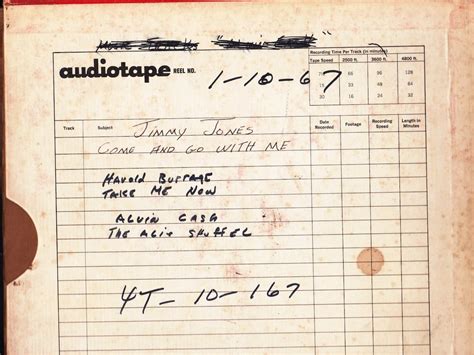 Recording Time Per Track (in minutes)
Tape Speed 2500 ft. 3600 ft. 4800 ft.
96 128
33 48 64
30 16 24 32
audiotape REEL NO. 1-10-67
Track Subject Date Recorded Footage Recording Speed Length in Minutes
Jimmy Jones
Come and Go With Me
Harold Burrage
Take Me Now
Alvin Cash
The Alie Shuffel
4T-10-167